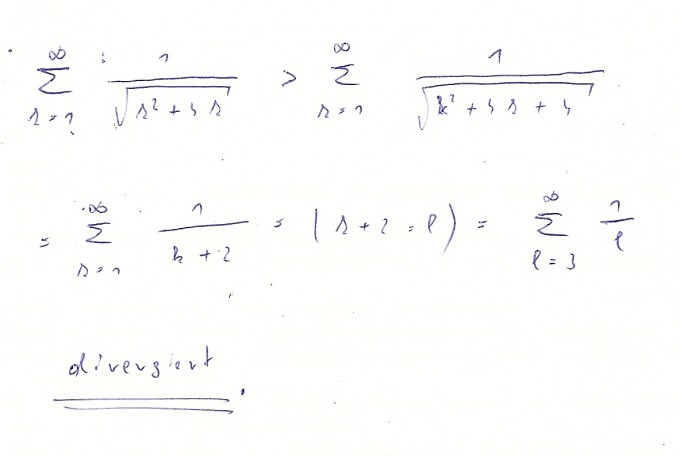 ∑_{k=1}^{∞} 1/√(k² + 4k) > ∑_{k=1}^{∞} 1/√(k² + 4k + 4)
= ∑_{k=1}^{∞} 1/(k + 2) = (k + 2 = l) = ∑_{l=3}^{∞} 1/l
divergiert.